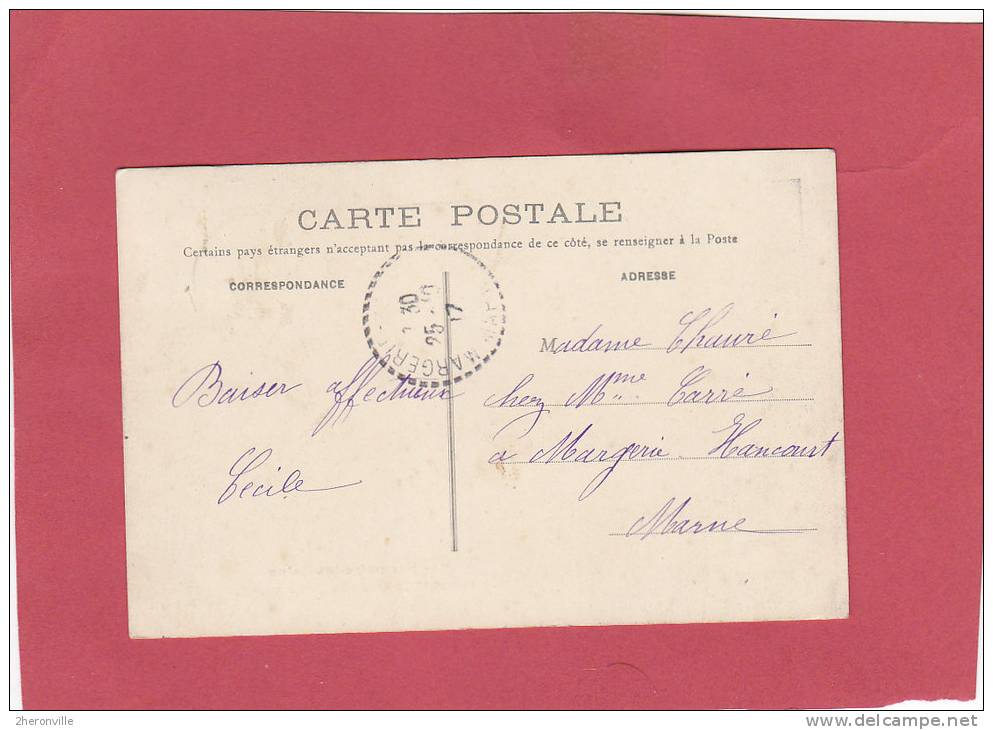 CARTE POSTALE
Certains pays étrangers n'acceptant pas la correspondance de ce côté, se renseigner à la Poste
CORRESPONDANCE
ADRESSE
30
25
17
MARGERIE
Baiser affectueux
Cécile
Madame Chauré
chez Mme Carré
à Margerie Hancourt
Marne
2heronville
www.delcampe.net